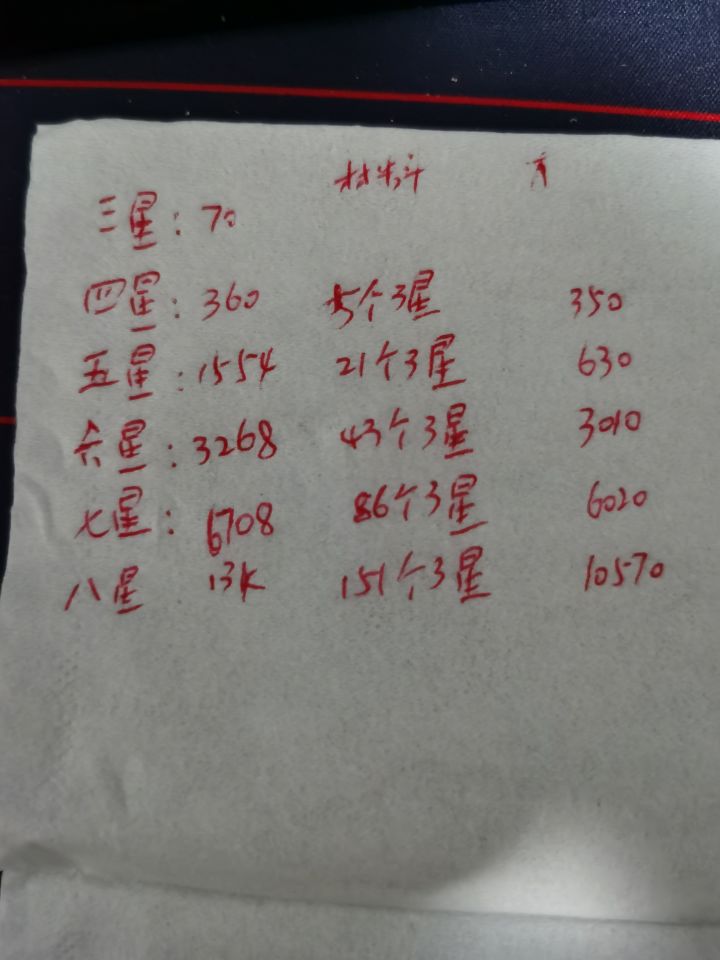 材料
三星：70
四星：360 5个3星 350
五星：1554 21个3星 630
六星：3268 43个3星 3010
七星：6708 86个3星 6020
八星 13K 151个3星 10570